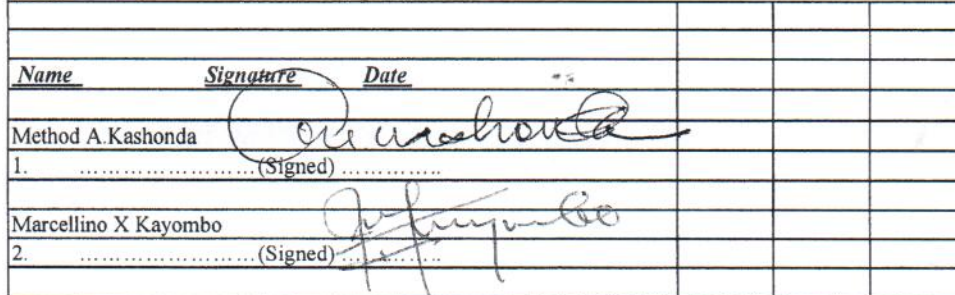 Name Signature Date
Method A.Kashonda
1. ……………………(Signed) …………..
Marcellino X Kayombo
2. ……………………(Signed) …………..